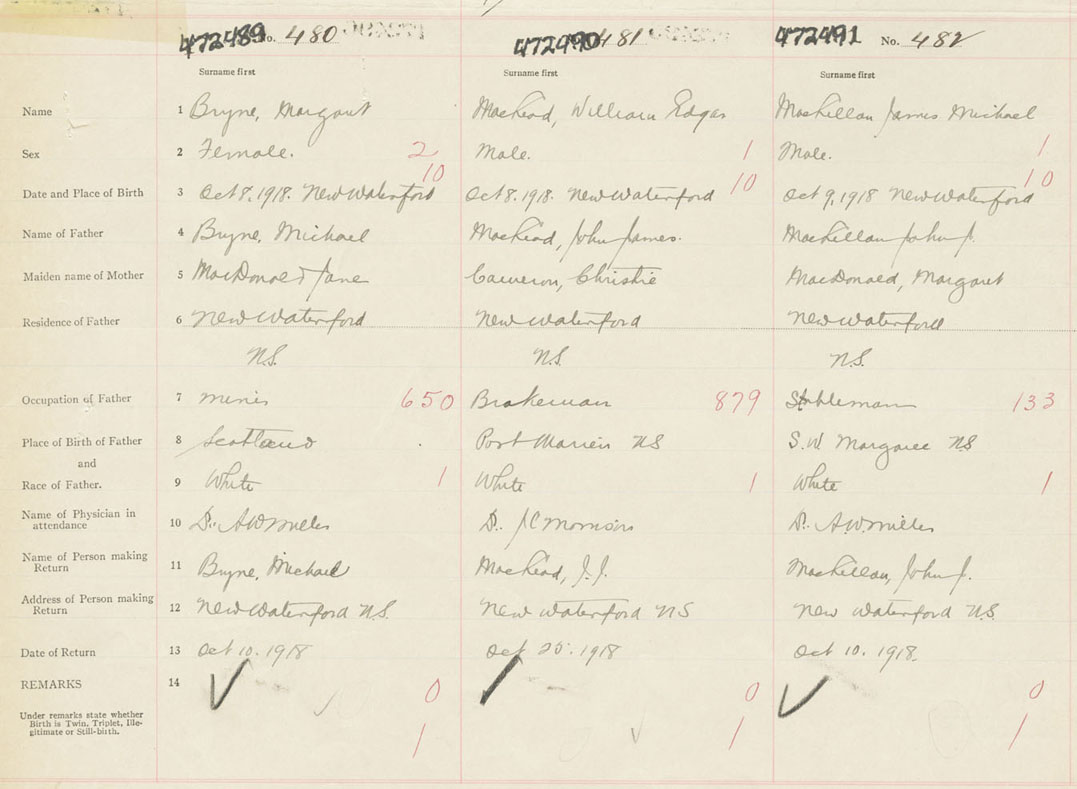 472489 No. 480 472490 481 472491 No. 482
Surname first Surname first Surname first
Name 1 Bryne, Margaret MacLead, William Edgar MacLellan James Michael
Sex 2 Female. 2 Male. 1 Male. 1
10 10 10
Date and Place of Birth 3 Oct 8, 1918. New Waterford Oct 8. 1918. New Waterford Oct 9, 1918 New Waterford
Name of Father 4 Bryne, Michael MacLead, John James. MacLellan John J.
Maiden name of Mother 5 MacDonald Jane Cameron, Christie MacDonald, Margaret
Residence of Father 6 New Waterford New Waterford New Waterford
N.S. N.S. N.S.
Occupation of Father 7 miner 650 Brakeman 879 Stableman 133
Place of Birth of Father 8 Scotland Port Morien NS S.W Margaree NS
and
Race of Father. 9 White 1 White 1 White 1
Name of Physician in
attendance 10 Dr. A W Miller Dr. J C Morrison Dr. A. W. Miller
Name of Person making
Return 11 Bryne, Michael MacLead, J. J. MacLellan, John J.
Address of Person making
Return 12 New Waterford N.S. New Waterford NS New Waterford N.S
Date of Return 13 Oct 10. 1918 Oct 25. 1918 Oct 10. 1918.
REMARKS 14 0 0 0
Under remarks state whether
Birth is Twin, Triplet, Ille-
gitimate or Still-birth. 1 1 1